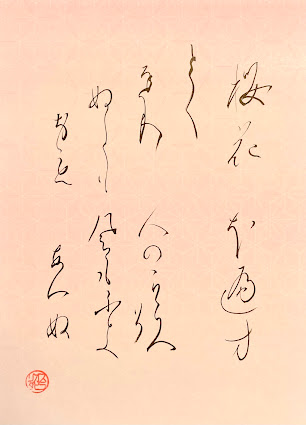 桜花
とく
ちり
ぬとも
おも
ほえす
人の心
風もふき
あへぬ